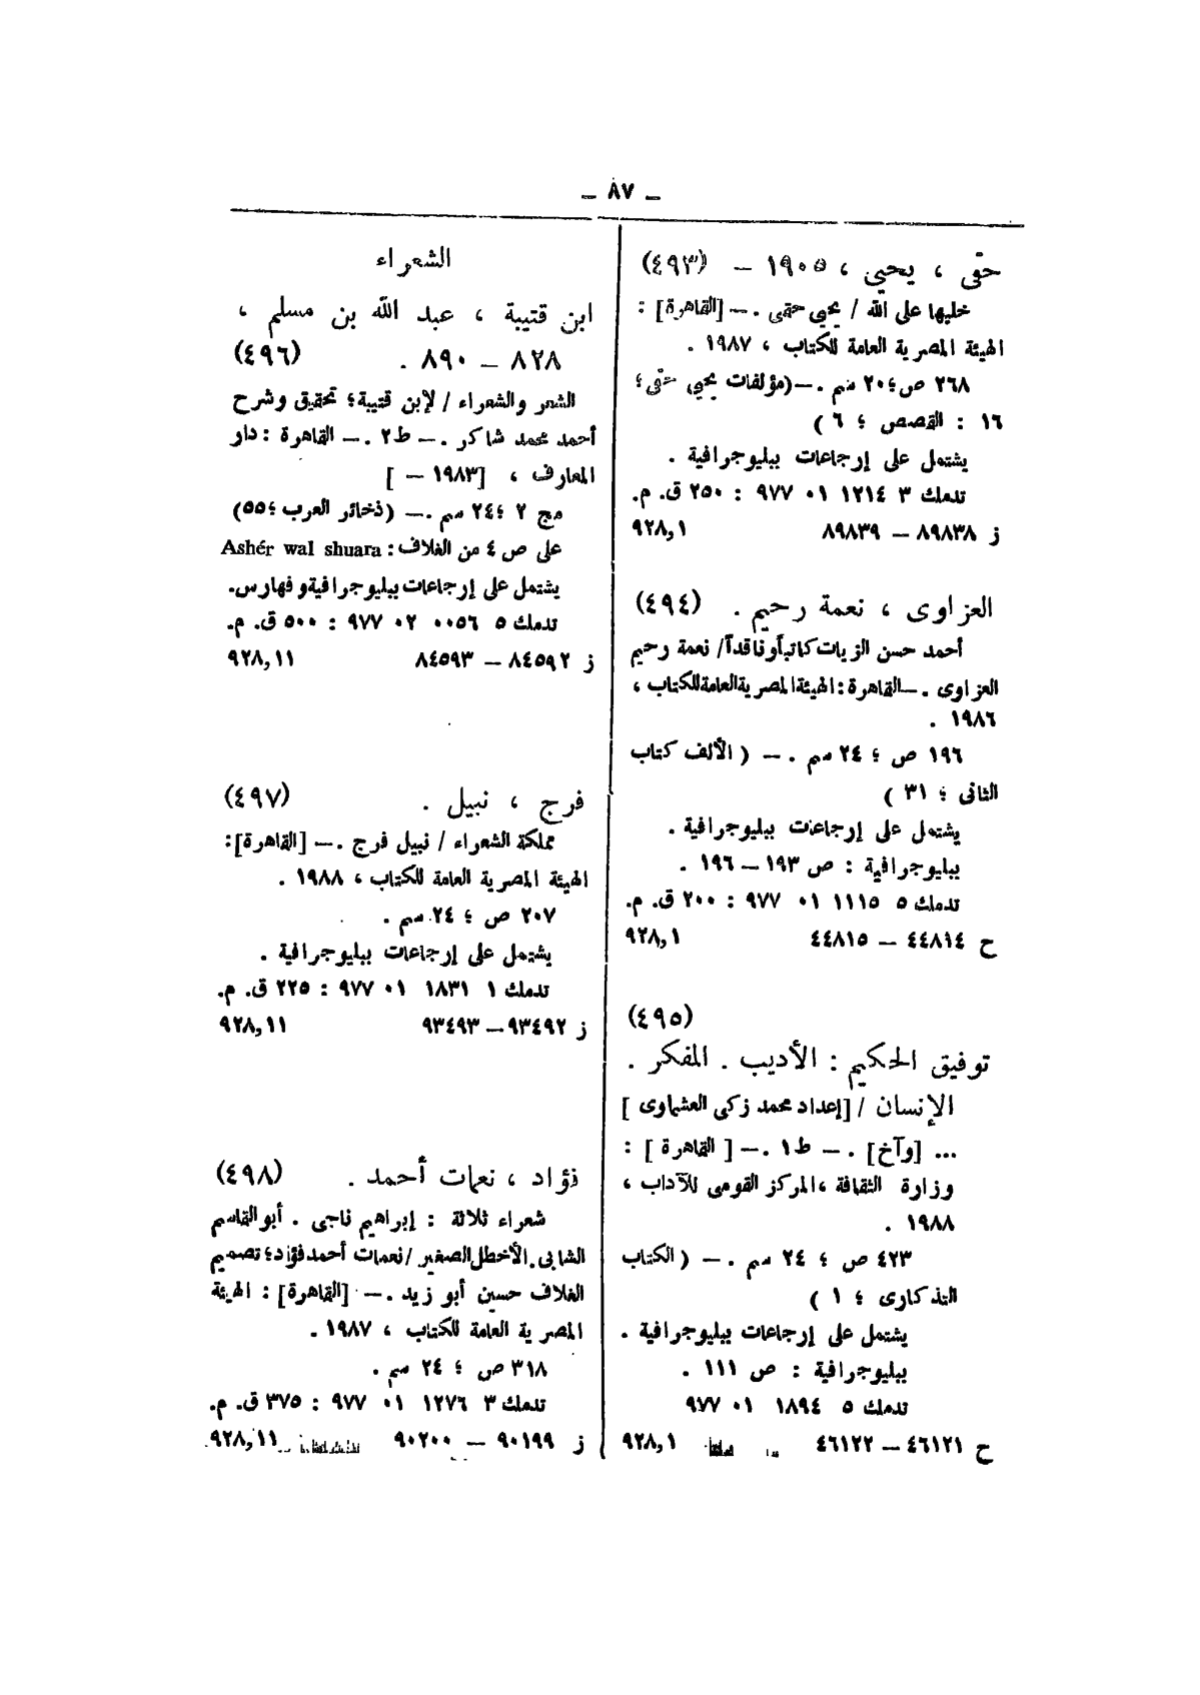 ـ ٨٧ ـ
حقى ، يحيي ، ١٩٠٥ – (٤٩٣)
خليها على الله / يحيى حقى . – [القاهرة] :
الهيئة المصرية العامة للكتاب ، ١٩٨٧ .
٢٦٨ ص ؛ ٢٠ سم . – (مؤلفات يحيي حقى ؛
١٦ : القصص ؛ ٦ )
يشتمل على إرجاعات ببليوجرافية .
تدمك ٣ ١٢١٤ ٠١ ٩٧٧ : ٢٥٠ ق. م.
ز ٨٩٨٣٨ – ٨٩٨٣٩ ٩٢٨,١
العزاوى ، نعمة رحيم . (٤٩٤)
أحمد حسن الزيات كاتباً وناقداً / نعمة رحيم
العزاوى . – القاهرة : الهيئة المصرية العامة للكتاب ،
١٩٨٦ .
١٩٦ ص ؛ ٢٤ سم . – ( الألف كتاب
الثانى ؛ ٣١ )
يشتمل على إرجاعات ببليوجرافية .
ببليوجرافية : ص ١٩٣ – ١٩٦ .
تدمك ٥ ١١١٥ ٠١ ٩٧٧ : ٢٠٠ ق. م.
ح ٤٤٨١٤ – ٤٤٨١٥ ٩٢٨,١
(٤٩٥)
توفيق الحكيم : الأديب . المفكر .
الإنسان / [إعداد محمد زكى العشماوى ]
... [وآخ] . – ط١ . – [ القاهرة ] :
وزارة الثقافة ، المركز القومى للآداب ،
١٩٨٨ .
٤٢٣ ص ؛ ٢٤ سم . – ( الكتاب
التذكارى ؛ ١ )
يشتمل على إرجاعات ببليوجرافية .
ببليوجرافية : ص ١١١ .
تدمك ٥ ١٨٩٤ ٠١ ٩٧٧
ح ٤٦١٢١ – ٤٦١٢٢ ٩٢٨,١
الشعراء
ابن قتيبة ، عبد الله بن مسلم ،
٨٢٨ – ٨٩٠ . (٤٩٦)
الشعر والشعراء / لإبن قتيبة ؛ تحقيق وشرح
أحمد محمد شاكر . – ط٢ . – القاهرة : دار
المعارف ، [١٩٨٣ – ]
مج ٢ ؛ ٢٤ سم . – (ذخائر العرب ؛ ٥٥)
على ص ٤ من الغلاف : Ashér wal shuara
يشتمل على إرجاعات ببليوجرافية وفهارس.
تدمك ٥ ٠٠٥٦ ٠٢ ٩٧٧ : ٥٠٠ ق. م.
ز ٨٤٥٩٢ – ٨٤٥٩٣ ٩٢٨,١١
فرج ، نبيل . (٤٩٧)
مملكة الشعراء / نبيل فرج . – [القاهرة]:
الهيئة المصرية العامة للكتاب ، ١٩٨٨ .
٢٠٧ ص ؛ ٢٤ سم .
يشتمل على إرجاعات ببليوجرافية .
تدمك ١ ١٨٣١ ٠١ ٩٧٧ : ٢٢٥ ق. م.
ز ٩٣٤٩٢ – ٩٣٤٩٣ ٩٢٨,١١
فؤاد ، نعمات أحمد . (٤٩٨)
شعراء ثلاثة : إبراهيم ناجى . أبو القاسم
الشابى . الأخطل الصغير / نعمات أحمد فؤاد ؛ تصميم
الغلاف حسين أبو زيد . – [القاهرة] : الهيئة
المصرية العامة للكتاب ، ١٩٨٧ .
٣١٨ ص ؛ ٢٤ سم .
تدمك ٣ ١٢٧٦ ٠١ ٩٧٧ : ٣٧٥ ق. م.
ز ٩٠١٩٩ – ٩٠٢٠٠ ٩٢٨,١١